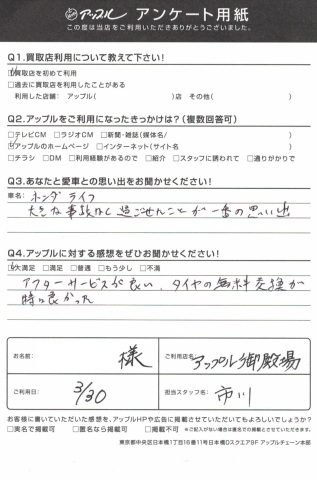 アップル アンケート用紙
この度は当店をご利用いただきありがとうございました。
Q1.買取店利用について教えて下さい!
☑買取店を初めて利用
□過去に買取店を利用したことがある
利用した店舗: アップル( )店 その他( )
Q2.アップルをご利用になったきっかけは?(複数回答可)
□テレビCM □ラジオCM □新聞・雑誌(媒体名/ )
☑アップルのホームページ □インターネット(サイト名 )
□チラシ □DM □利用経験があるので □紹介 □スタッフに誘われて □通りがかりで
Q3.あなたと愛車との思い出をお聞かせください!
車名: ホンダ ライフ
大きな事故なく過ごせたことが一番の思い出
Q4.アップルに対する感想をぜひお聞かせください!
☑大満足 □満足 □普通 □もう少し □不満
アフターサービスが良い、タイヤの無料交換が
特に良かった
お名前: 様
ご利用店名: アップル御殿場
ご利用日: 3/30
担当スタッフ名: 市川
お客様に書いていただいた感想を、アップルHPや広告に掲載させていただいてもよろしいでしょうか?
□実名で掲載可 □匿名なら掲載可 □掲載不可 *ご記入がない場合は匿名での掲載とさせていただきます。
東京都中央区日本橋1丁目16番11号日本橋Dスクエア9F アップルチェーン本部